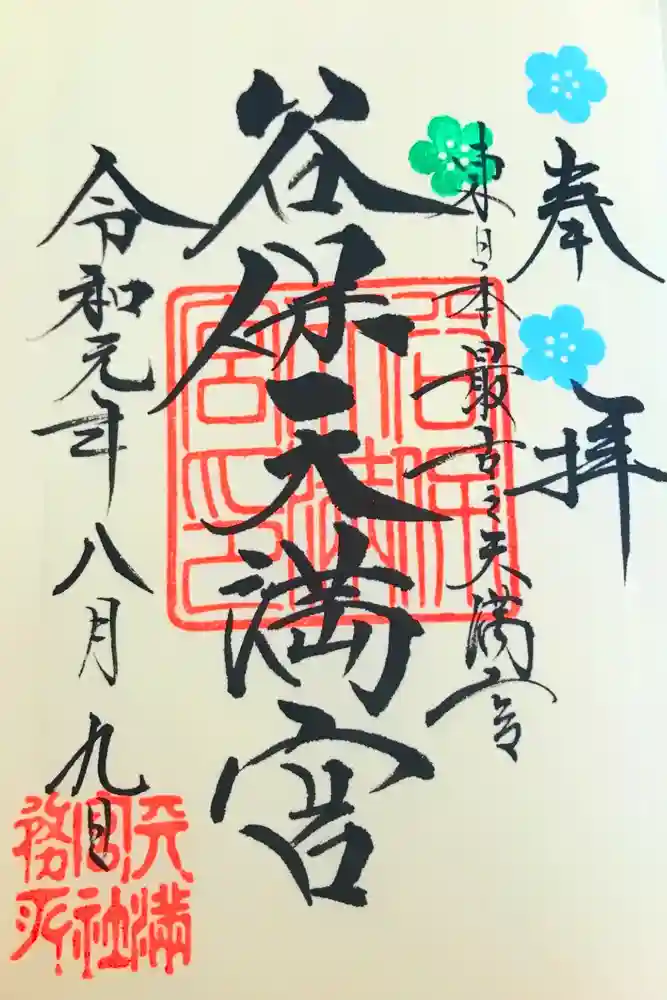 奉拝
東日本最古之天満宮
谷保天満宮
令和元年八月九日
谷保天満宮印
天満宮社務所